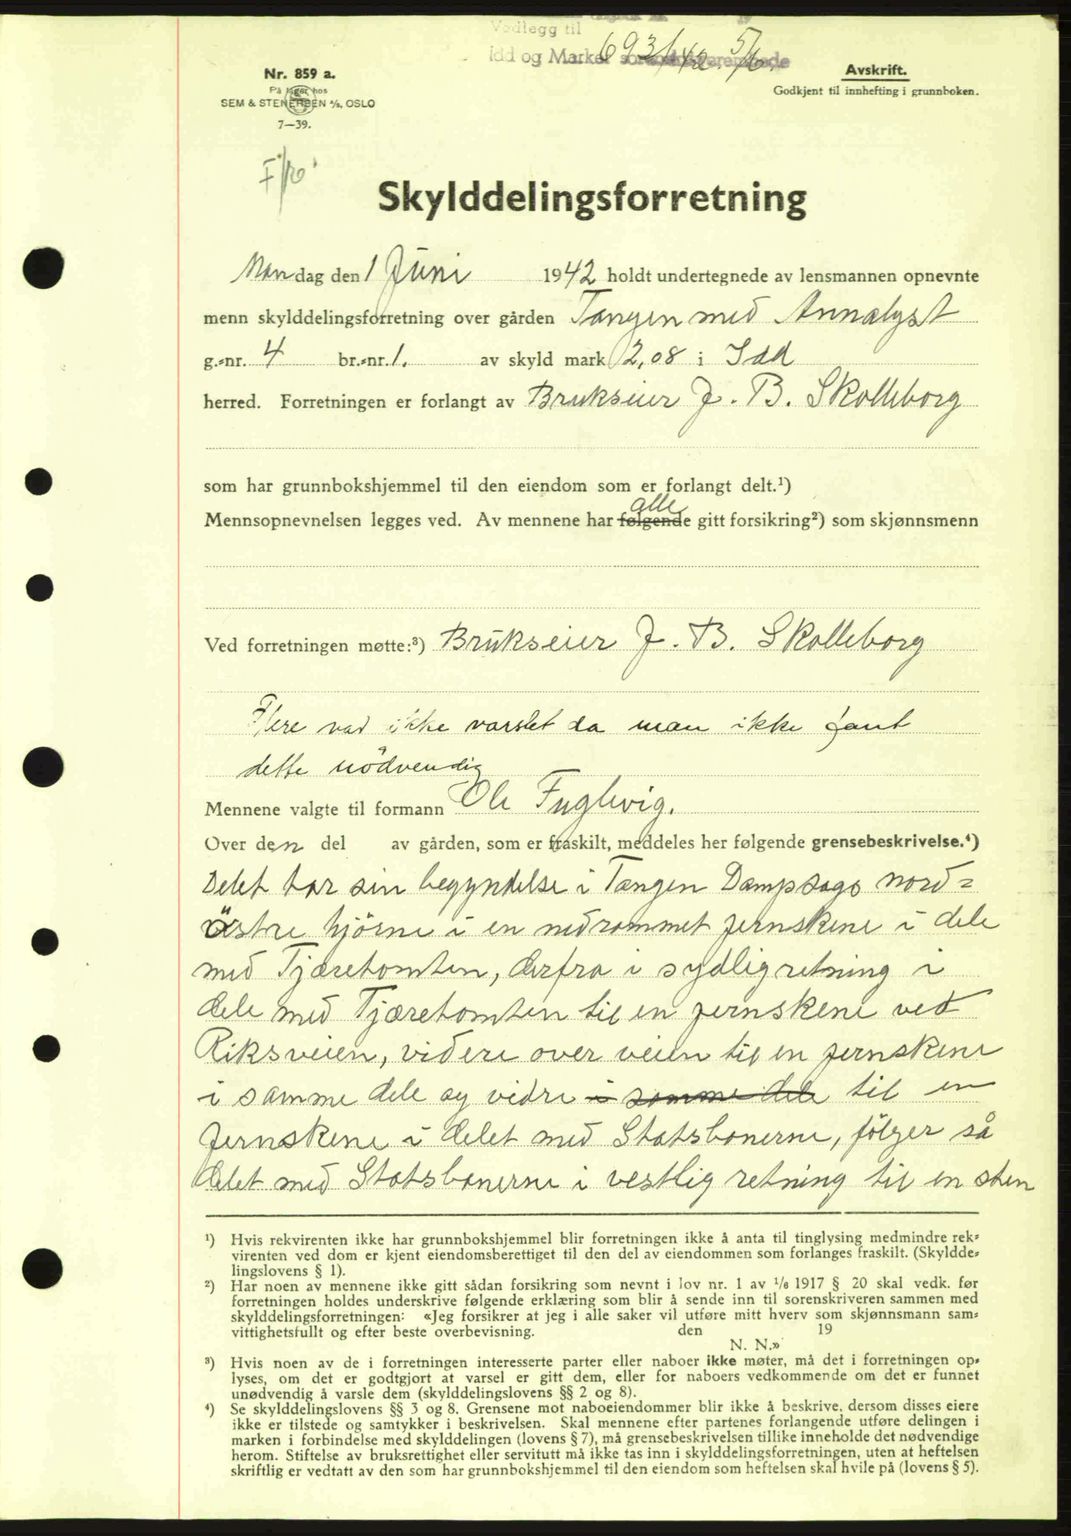 Vedlegg til
Idd og Marker sorenskriverembede
693/42 5/6
Nr. 859 a.
På lager hos
SEM & STENERSEN A/S, OSLO
7—39.
Avskrift.
Godkjent til innhefting i grunnboken.
Skylddelingsforretning
Mandag den 1 Juni 1942 holdt undertegnede av lensmannen opnevnte
menn skylddelingsforretning over gården Tangen med Annalyst
g.-nr. 4 br.-nr. 1. av skyld mark 2,08 i Idd
herred. Forretningen er forlangt av Brukseier J. B. Skolleborg
som har grunnbokshjemmel til den eiendom som er forlangt delt.¹)
alle
Mennsopnevnelsen legges ved. Av mennene har følgende gitt forsikring²) som skjønnsmenn
Ved forretningen møtte:³) Brukseier J. B. Skolleborg
Flere var ikke varslet da man ikke fant
dette nödvendig
Mennene valgte til formann Ole Fuglevig.
Over den del av gården, som er fraskilt, meddeles her følgende grensebeskrivelse.⁴)
Delet tar sin begyndelse i Tangen Dampsags nord=
östre hjörne i en nedrammet jernskene i dele
med Tjæretomten, derfra i sydlig retning i
dele med Tjæretomten til en jernskene ved
Riksveien, videre over veien til en jernskene
i samme dele og vidre i samme dele til en
jernskene i delet med Statsbanerne, följer så
delet med Statsbanerne i vestlig retning til en sten
¹) Hvis rekvirenten ikke har grunnbokshjemmel blir forretningen ikke å anta til tinglysing medmindre rek-
virenten ved dom er kjent eiendomsberettiget til den del av eiendommen som forlanges fraskilt. (Skyldde-
lingslovens § 1).
²) Har noen av mennene ikke gitt sådan forsikring som nevnt i lov nr. 1 av 1/6 1917 § 20 skal vedk. før
forretningen holdes underskrive følgende erklæring som blir å sende inn til sorenskriveren sammen med
skylddelingsforretningen: «Jeg forsikrer at jeg i alle saker vil utføre mitt hverv som skjønnsmann sam-
vittighetsfullt og efter beste overbevisning. den 19
N. N.»
³) Hvis noen av de i forretningen interesserte parter eller naboer ikke møter, må det i forretningen op-
lyses, om det er godtgjort at varsel er gitt dem, eller for naboers vedkommende om det er funnet
unødvendig å varsle dem (skylddelingslovens §§ 2 og 8).
⁴) Se skylddelingslovens §§ 3 og 8. Grensene mot naboeiendommer blir ikke å beskrive, dersom disses eiere
ikke er tilstede og samtykker i beskrivelsen. Skal mennene efter partenes forlangende utføre delingen i
marken i forbindelse med skylddelingen (lovens § 7), må grensebeskrivelsen tillike inneholde det nødvendige
herom. Stiftelse av bruksrettighet eller servitutt må ikke tas inn i skylddelingsforretningen, uten at heftelsen
skriftlig er vedtatt av den som har grunnbokshjemmel til den eiendom som heftelsen skal hvile på (lovens § 5).